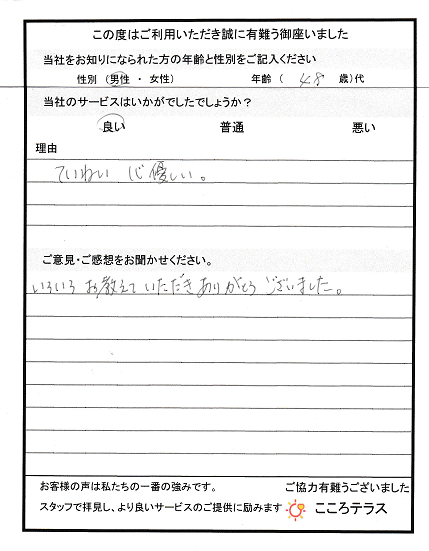 この度はご利用いただき誠に有難う御座いました
当社をお知りになられた方の年齢と性別をご記入ください
性別 (男性 ・ 女性) 年齢 ( 48 歳)代
当社のサービスはいかがでしたでしょうか?
良い 普通 悪い
理由
ていねい 心優しい。
ご意見・ご感想をお聞かせください。
いろいろ お教えて いただき ありがとう ございました。
お客様の声は私たちの一番の強みです。 ご協力有難うございました
スタッフで拝見し、より良いサービスのご提供に励みます こころテラス